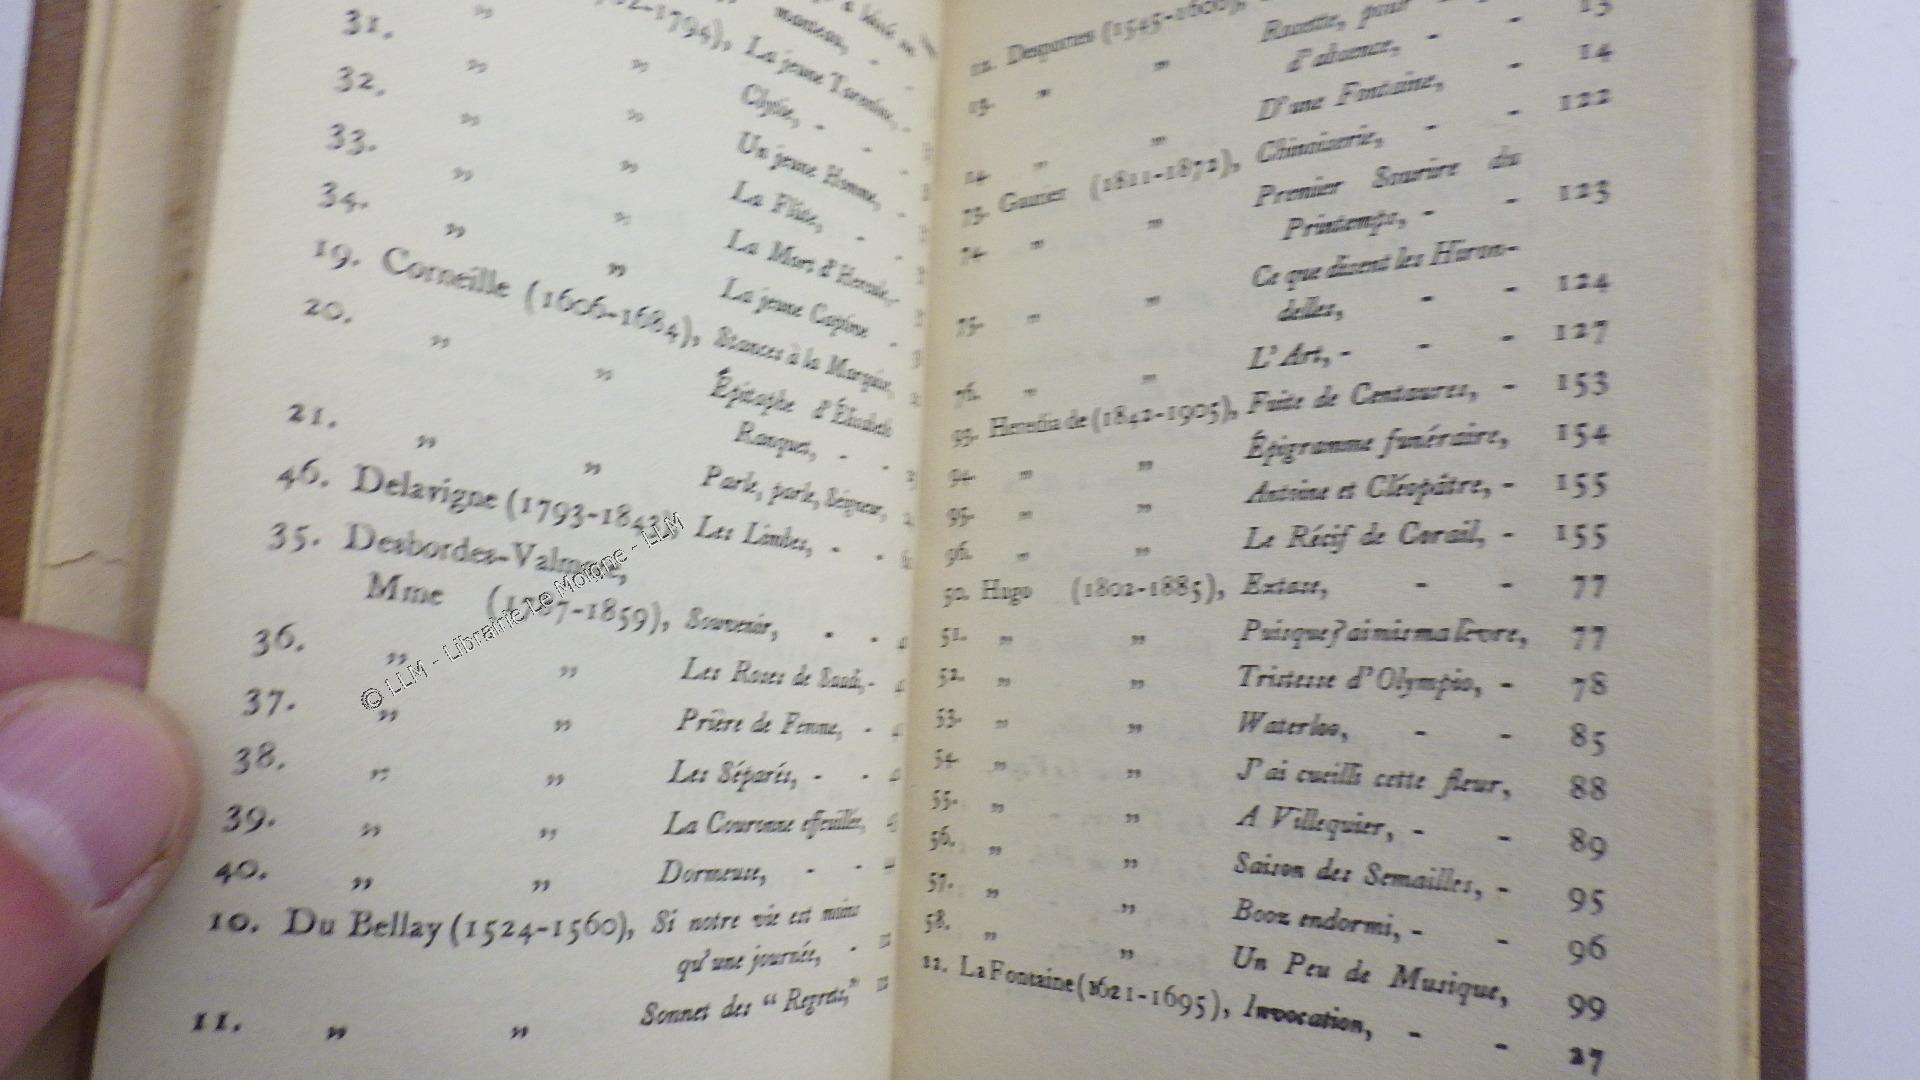 31. " manteau, -
1794), La jeune Tarentine, -
32. " " Clytie, -
33. " " Un jeune Homme, -
34. " " La Flûte, -
" " La Mort d'Hercule, -
" " La jeune Captive -
19. Corneille (1606-1684), Stances à la Marquise,
20. " " Épitaphe d'Élisabeth
Ranquet, - -
21. " " Parle, parle, Seigneur,
46. Delavigne (1793-1843), Les Limbes, - -
35. Desbordes-Valmore,
Mme (1787-1859), Souvenir, - -
36. " " Les Roses de Saadi, -
37. " " Prière de Femme, -
38. " " Les Séparés, - -
39. " " La Couronne effeuillée,
40. " " Dormeuse, - - -
10. Du Bellay (1524-1560), Si notre vie est moins
qu'une journée, -
11. " " Sonnet des "Regrets,"
12. Desportes (1545-1606),
13. " " Rosette, pour 13
d'absence, - - 14
14. " " D'une Fontaine, - 122
73. Gautier (1811-1872), Chinoiserie, - -
74. " " Premier Sourire du
Printemps, - - 123
75. " " Ce que disent les Hiron-
delles, - - 124
76. " " L'Art, - - - 127
93. Heredia de (1842-1905), Fuite de Centaures, - 153
94. " " Épigramme funéraire, 154
95. " " Antoine et Cléopâtre, - 155
96. " " Le Récif de Corail, - 155
50. Hugo (1802-1885), Extase, - - 77
51. " " Puisque j'ai mis ma lèvre, 77
52. " " Tristesse d'Olympio, - 78
53. " " Waterloo, - - 85
54. " " J'ai cueilli cette fleur, 88
55. " " A Villequier, - - 89
56. " " Saison des Semailles, - 95
57. " " Booz endormi, - - 96
58. " " Un Peu de Musique, 99
22. La Fontaine (1621-1695), Invocation, - - 27
© LLM - Librairie Le Moigne - LLM